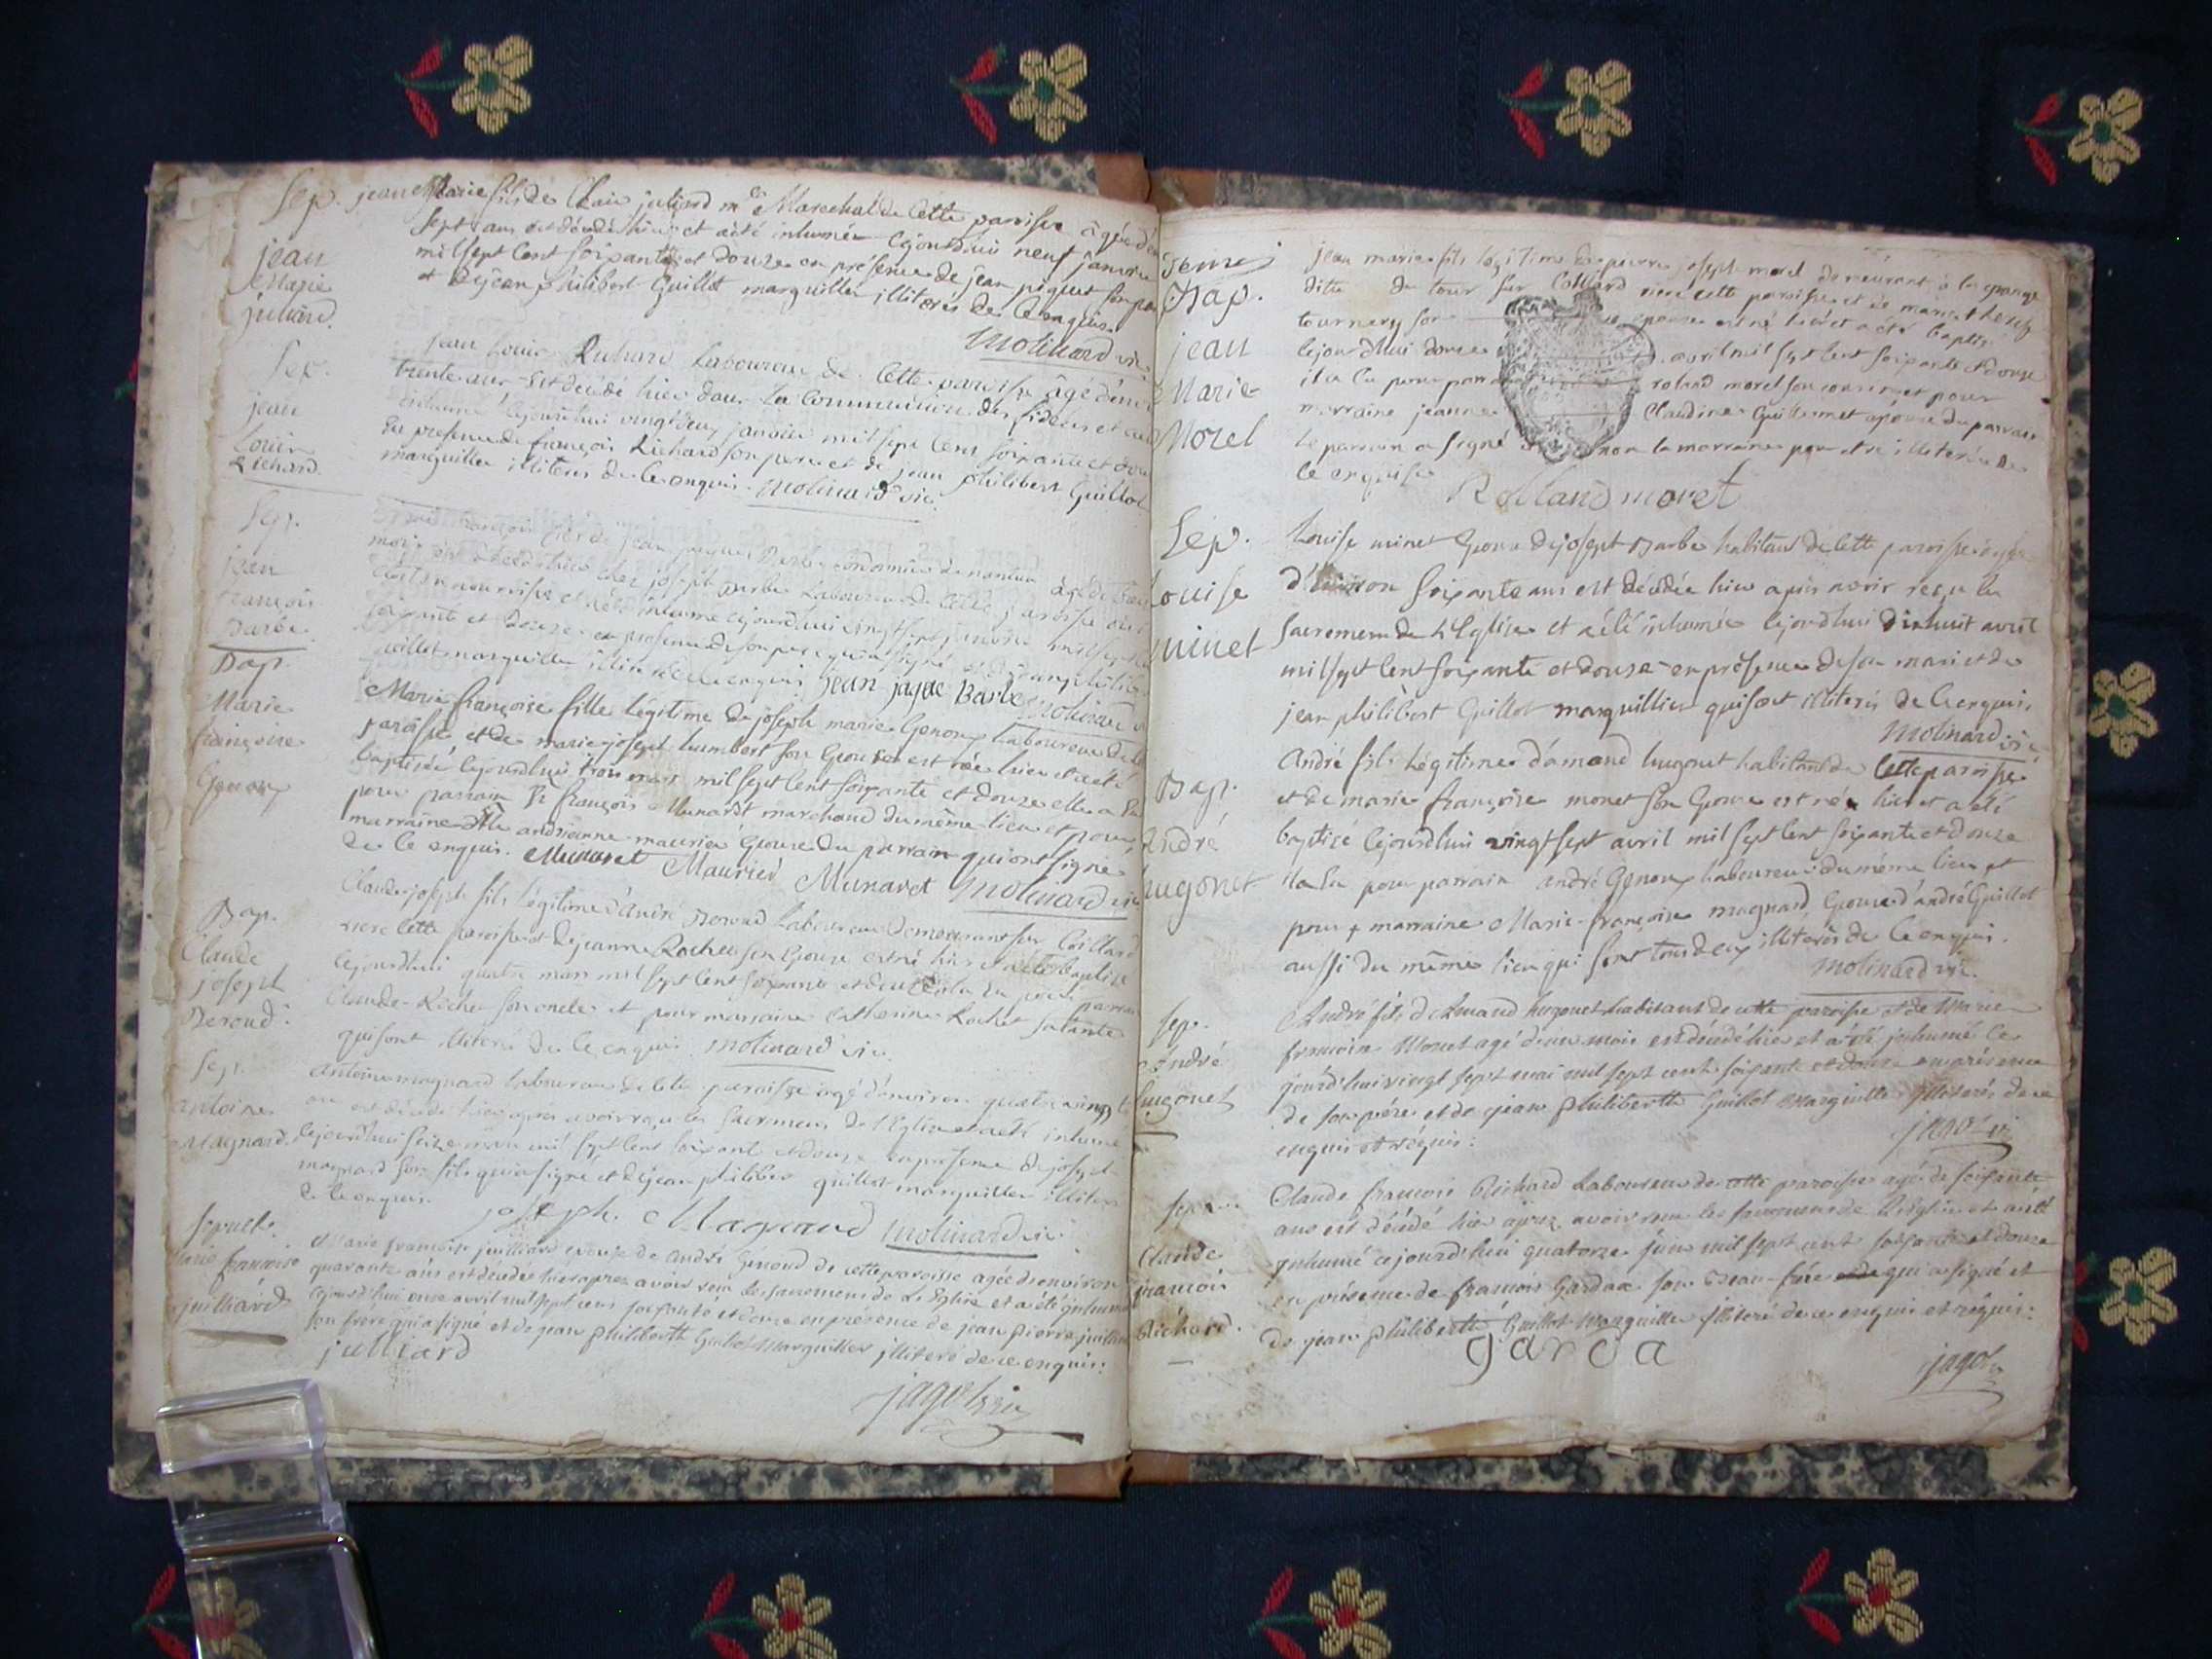 Sep.
jean
Marie
juliard.
jean Marie fils de Clair juliard me Marechal de Cette paroisse âgé d'en
Sept ans est décédé hier et a été inhumé cejourdhui neuf janvier
mil sept Cent soixante et douze en présence de jean piquet
et de jean philibert Guillot marguillier illiterés de Ce enquis.
Molinard vic.
Sep.
jean
Louis
Richard.
jean Louis Richard Laboureur de Cette paroisse âgé d'envi
trente ans est décédé hier dans la Communion des fideles et a été
inhumé cejourdhui vingt deux janvier mil sept Cent soixante et douze
en presence de françois Richard son pere et de jean philibert Guillot
marguillier illiterés de Ce enquis. Molinard vic.
Sep.
jean
françois
Barbe.
jean françois fils de jean jaques Barbe Cordonnier de nantua âgé de
mois est décédé hier chez joseph Barbe Laboureur de Cette paroisse
en nourrisse et a été inhumé cejourdhui vingt sept janvier mil sept
soixante et douze en presence de son pere qui a signé et de jean philibert
Guillot marguillier illiteré de Ce enquis. Jean jaque Barbe Molinard
Bap.
Marie
françoise
Genoux
Marie françoise fille légitime de joseph marie Genoux Laboureur de Cette
paroisse et de marie joseph humbert son Epouse est née hier et a été
baptisée cejourdhui trois mars mil sept Cent soixante et douze elle a eu
pour parrain Sr françois Munaret marchand du même lieu et pour
marraine andrianne maurier Epouse du parrain qui ont signé
de Ce enquis. Munaret Maurier Munaret Molinard vic
Bap.
Claude
joseph
Beroud.
Claude joseph fils légitime d'André Beroud Laboureur demeurant sur Coillard
riere Cette paroisse et de jeanne Rochet son Epouse est né hier et a été baptisé
cejourdhui quatre mars mil sept Cent soixante et douze il a eu pour parrain
Claude Rochet son oncle et pour marraine Catherine Rochet sa tante
qui sont illiterés de Ce enquis. Molinard vic.
Sep.
antoine
Magnard.
Antoine magnard Laboureur de Cette paroisse âgé d'environ quatre vingt
ans est décédé hier après avoir reçu les Sacremens de l'Eglise et a été inhumé
cejourdhui seize mars mil sept Cent soixante et douze en presence de joseph
magnard son fils qui a signé et de jean philibert guillot marguillier illiteré
de Ce enquis.
joseph Magnard Molinard vic
Sepult.
Marie françoise
juilliard
Marie françoise juilliard epouse de André Genoud de cette paroisse agée d'environ
quarante ans est décédée hier aprez avoir reçu les sacremens de L'Eglise et a été jnhumée
cejourd'hui onze avril mil sept cens soixante et douze en présence de jean pierre juilliard
son frére qui a signé et de jean philiberth Guillot Marguillier jlliteré de ce enquis:
julliard
jagot vic
Bap.
jean
Marie
Morel
jean marie fils légitime de pierre joseph morel demeurant à la grange
ditte de tour sur Coillard riere cette paroisse et de
tournery son epouse est né hier et a été baptisé
cejourdhui douze avril mil sept Cent soixante et douze
il a eu pour parrain roland morel son cousin et pour
marraine jeanne Claudine Guillermet epouse du parrain
le parrain a signé non la marraine pour etre illiterée de
Ce enquise
Rolland morel
Sep.
Louise
minet
Louise minet Epouse de joseph Barbe habitant de Cette paroisse âgée
d'Environ soixante ans est décédée hier après avoir reçu les
sacremens de L'Eglise et a été inhumée cejourdhui dixhuit avril
mil sept Cent soixante et douze en présence de son mari et de
jean philibert Guillot marguillier qui sont illiterés de Ce enquis.
Molinard vic
Bap.
André
hugonet
André fils légitime d'amand hugonet habitant de Cette paroisse
et de marie françoise monet son Epouse est né hier et a été
baptisé cejourdhui vingt sept avril mil sept Cent soixante et douze
il a eu pour parrain andré Genoux Laboureur du même lieu et
pour marraine Marie françoise magnard Epouse d'andré Guillot
aussi du même lieu qui sont tous deux illiterés de Ce enquis.
Molinard vic.
Sep.
André
hugonet
André fils d'Amand hugonet habitant de cette paroisse et de Marie
françoise Monet agé d'un mois est décédé hier et a été jnhumé ce
jourd'hui vingt sept mai mil sept cent soixante et douze en présence
de son pére et de jean philiberth Guillot Marguillier jlliterés de ce
enquis et réquis:
jagot vi
Sep.
Claude
françois
Richard.
Claude françois Richard Laboureur de cette paroisse agé de soixante
ans est décédé hier aprez avoir reçu les sacremens de l'Eglise et a été
jnhumé cejourd'hui quatorze juin mil sept cent soixante et douze
en présence de françois Gardaz son beau-frére qui a signé et
de jean philiberth Guillot Marguillier jlliteré de ce enquis et réquis:
garda
jagot